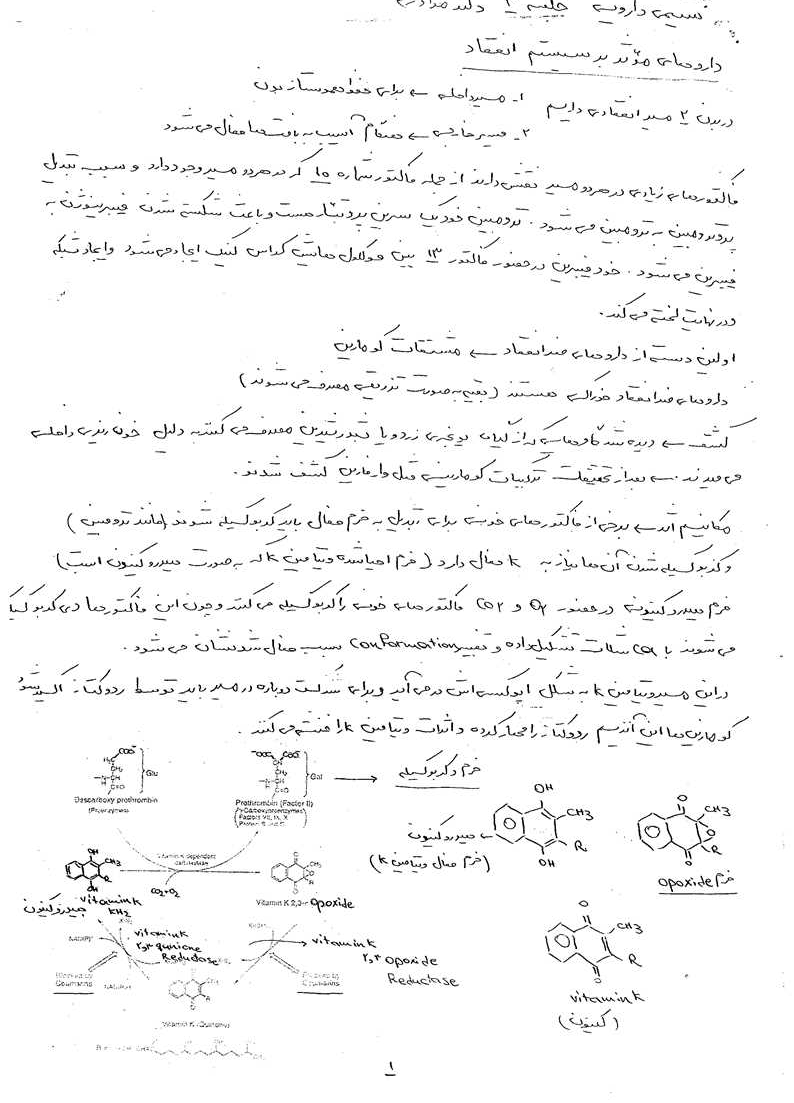 شیمی دارویی جلسه ۱ دکتر مرادی
داروهای مؤثر بر سیستم انعقاد
در بدن ۲ مسیر انعقادی داریم ۱- مسیر داخلی ← برای حفظ هموستاز بدن
۲- مسیر خارجی ← هنگام آسیب به بافت ها فعال می شود
فاکتورهای زیادی در هر دو مسیر نقش دارند از جمله فاکتور شماره ۱۰ که در هر دو مسیر وجود دارد و سبب تبدیل
پروترومبین به ترومبین می شود. ترومبین خود یک سرین پروتئاز هست و باعث شکسته شدن فیبرینوژن به
فیبرین می شود. خود فیبرین در حضور فاکتور ۱۳ بین مولکول هایش کراس لینک ایجاد می شود و ایجاد شبکه
و در نهایت لخته می کند.
اولین دسته از داروهای ضد انعقاد ← مشتقات کومارین
داروهای ضد انعقاد خوراکی هستند (بقیه به صورت تزریقی مصرف می شوند)
کشف ← دیده شد گاوهایی که از گیاه یونجه ی زرد یا شبدر شیرین مصرف می کنند به دلیل خون ریزی داخلی
می میرند. ← بعد از تحقیقات ترکیبات کومارینی مثل وارفارین کشف شدند.
مکانیسم اثر ← برخی از فاکتورهای خونی برای تبدیل به فرم فعال باید کربوکسیله شوند (مانند ترومبین)
و کربوکسیله شدن آن ها نیاز به k فعال دارد (فرم احیا شده ویتامین k که به صورت هیدروکینون است)
فرم هیدروکینونی در حضور O2 و CO2 فاکتورهای خونی را کربوکسیله می کنند و چون این فاکتورها دی کربوکسیله
می شوند با Ca شلات تشکیل داده و تغییر Conformation سبب فعال شدنشان می شود.
در این مسیر ویتامین k به شکل اپوکسی اش در می آید و برای شرکت دوباره در مسیر باید توسط ردوکتاز اکسید شود
کومارین ها این آنزیم ردوکتاز را مهار کرده و اثرات ویتامین k را خنثی می کنند.
COO⁻ CH₂ CH₂ Glu
Descarboxy prothrombin
(Proenzymes)
⁻OOC COO⁻ CH CH₂ Gal → فرم دکربوکسیله
Prothrombin (Factor II)
Factors VII, IX, X
Protein S and C
OH CH3 R OH
هیدروکینون
(فرم فعال ویتامین k)
O CH3 O R O
فرم opoxide
Vitamin K dependent
carboxylase
CO2+O2
OH CH3 R OH
vitamin k
KH2
هیدروکینون
Vitamin K 2,3- opoxide
vitamin k
۲,۳ quinone
Reductase
→ vitamin k
۲,۳ opoxide
Reductase
Blocked by
Coumarins
NADH
Blocked by
Coumarins
Vitamin K (Quinone)
O CH3 R O
vitamin k
(کینون)
۱